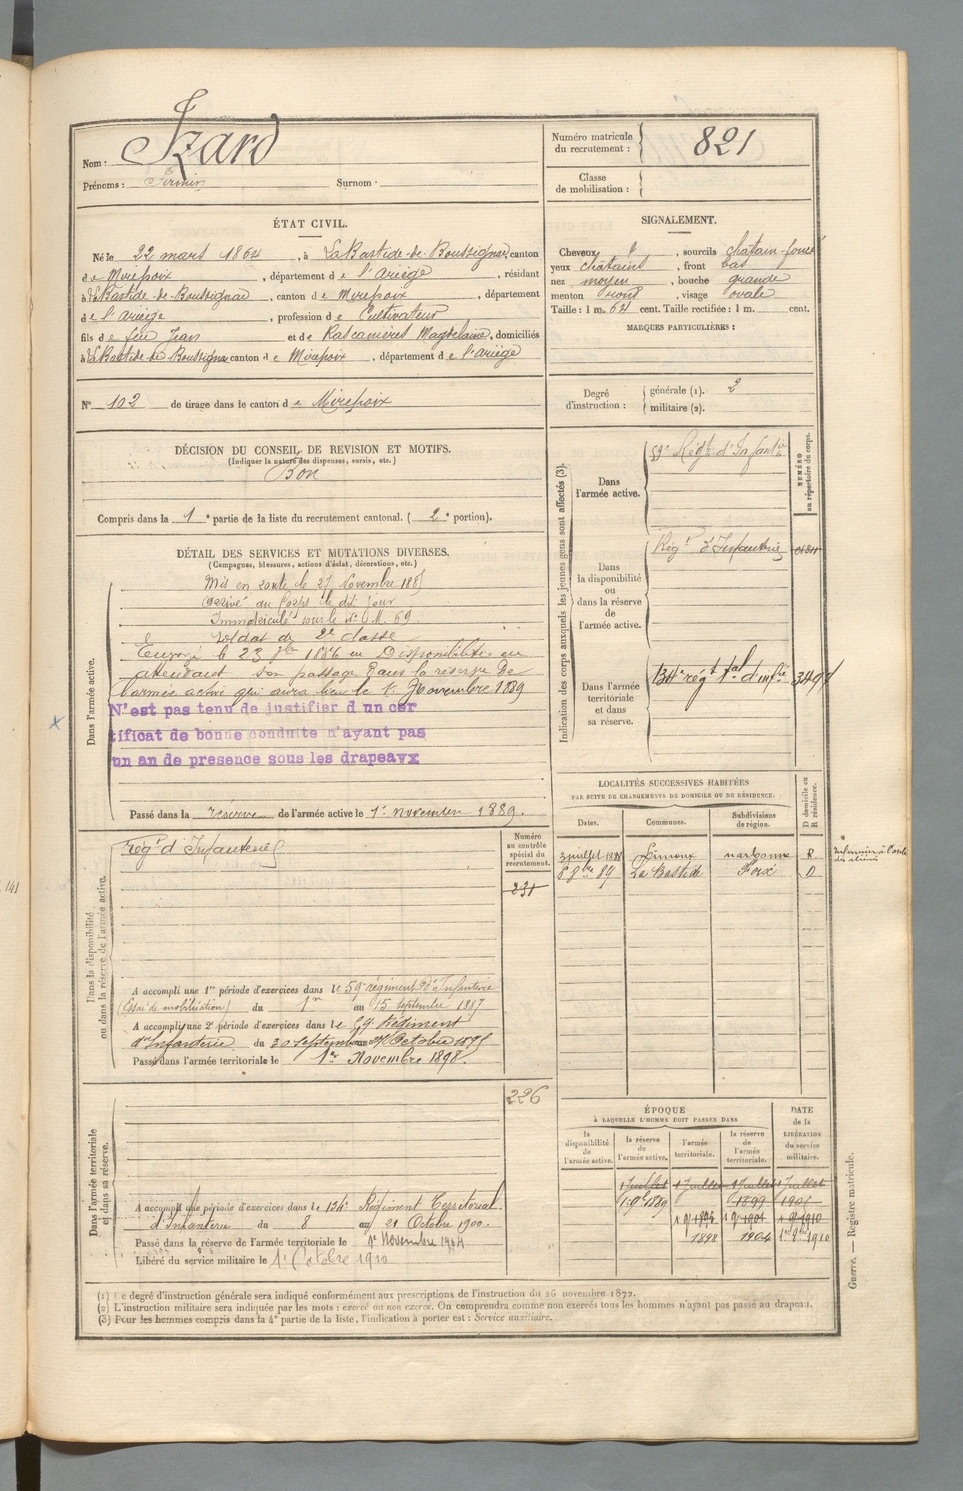 Nom : Izard
Prénoms : Firmin Surnom :
Numéro matricule du recrutement : 821
Classe de mobilisation :
ÉTAT CIVIL.
Né le 22 mars 1864, à La Bastide-de-Boussignac, canton
de Mirepoix, département de l'Ariège, résidant
à La Bastide-de-Boussignac, canton de Mirepoix, département
de l'ariège, profession de Cultivateur
fils de feu Jean et de Rascanières Magdelaine, domiciliés
à La Bastide-de-Boussignac canton de Mirepoix, département de l'ariège
SIGNALEMENT.
Cheveux, sourcils chatain-foncé
yeux chatains, front bas
nez moyen, bouche grande
menton rond, visage ovale
Taille : 1 m. 64 cent. Taille rectifiée : 1 m. cent.
MARQUES PARTICULIÈRES :
N° 102 de tirage dans le canton de Mirepoix
Degré d'instruction : générale (1). 2
militaire (2).
DÉCISION DU CONSEIL DE REVISION ET MOTIFS.
(Indiquer la nature des dispenses, sursis, etc.)
Bon
Compris dans la 1e partie de la liste du recrutement cantonal. (2e portion).
DÉTAIL DES SERVICES ET MUTATIONS DIVERSES.
(Campagnes, blessures, actions d'éclat, décorations, etc.)
Dans l'armée active.
Mis en route le 27 Novembre 1885
arrivé au Corps le dit jour
Immatriculé sous le N° M. 69
soldat de 2e classe
Envoyé le 23 7bre 1886 en Disponibilité en
attendant son passage dans la réserve De
l'armée active qui aura lieu le 1r Novembre 1889
N'est pas tenu de justifier d un cer
tificat de bonne conduite n'ayant pas
un an de presence sous les drapeaux
Passé dans la réserve de l'armée active le 1r novembre 1889.
Indication des corps auxquels les jeunes gens sont affectés (3).
NUMÉRO au répertoire du corps.
Dans l'armée active.
59e Régt d'Infantie
Dans la disponibilité ou dans la réserve de l'armée active.
Régt d'Infanterie
Dans l'armée territoriale et dans sa réserve.
134e régt tal d'infie
LOCALITÉS SUCCESSIVES HABITÉES
PAR SUITE DE CHANGEMENTS DE DOMICILE OU DE RÉSIDENCE.
Dates. Communes. Subdivisions de région. D domicile ou R résidence.
3 juillet 1888 Limoux narbonne R.
8 8bre 89 La Bastide Foix D
Infirmier à l'asile
Dans la disponibilité ou dans la réserve de l'armée active.
Régt d'Infanterie
Numéro au contrôle spécial du recrutement.
231
A accompli une 1re période d'exercices dans le 59e régiment d'Infanterie
(Essai de mobilisation) du 1er au 15 Septembre 1887
A accompli une 2e période d'exercices dans le 59e Régiment
d'Infanterie du 30 septembre au 27 Octobre 1895
Passé dans l'armée territoriale le 1er Novembre 1898.
226
Dans l'armée territoriale et dans sa réserve.
A accompli une période d'exercices dans le 134e Régiment Territorial
d'Infanterie du 8 au 21 Octobre 1900.
Passé dans la réserve de l'armée territoriale le 1r Novembre 1904
Libéré du service militaire le 1r Octobre 1910
ÉPOQUE
À LAQUELLE L'HOMME DOIT PASSER DANS
la disponibilité de l'armée active. la réserve de l'armée active. l'armée territoriale. la réserve de l'armée territoriale. DATE de la LIBÉRATION du service militaire.
1 Juillet 1 Juillet 1 Juillet 1 Juillet
1 9 1889 1899 1901
1 9 1894 1 9 1904 1 9 1910
1898 1904 1er 8bre 1910
(1) Le degré d'instruction générale sera indiqué conformément aux prescriptions de l'instruction du 26 novembre 1872.
(2) L'instruction militaire sera indiquée par les mots : exercé ou non exercé. On comprendra comme non exercés tous les hommes n'ayant pas passé au drapeau.
(3) Pour les hommes compris dans la 4e partie de la liste, l'indication à porter est : Service auxiliaire.
Guerre. — Registre matricule.
141